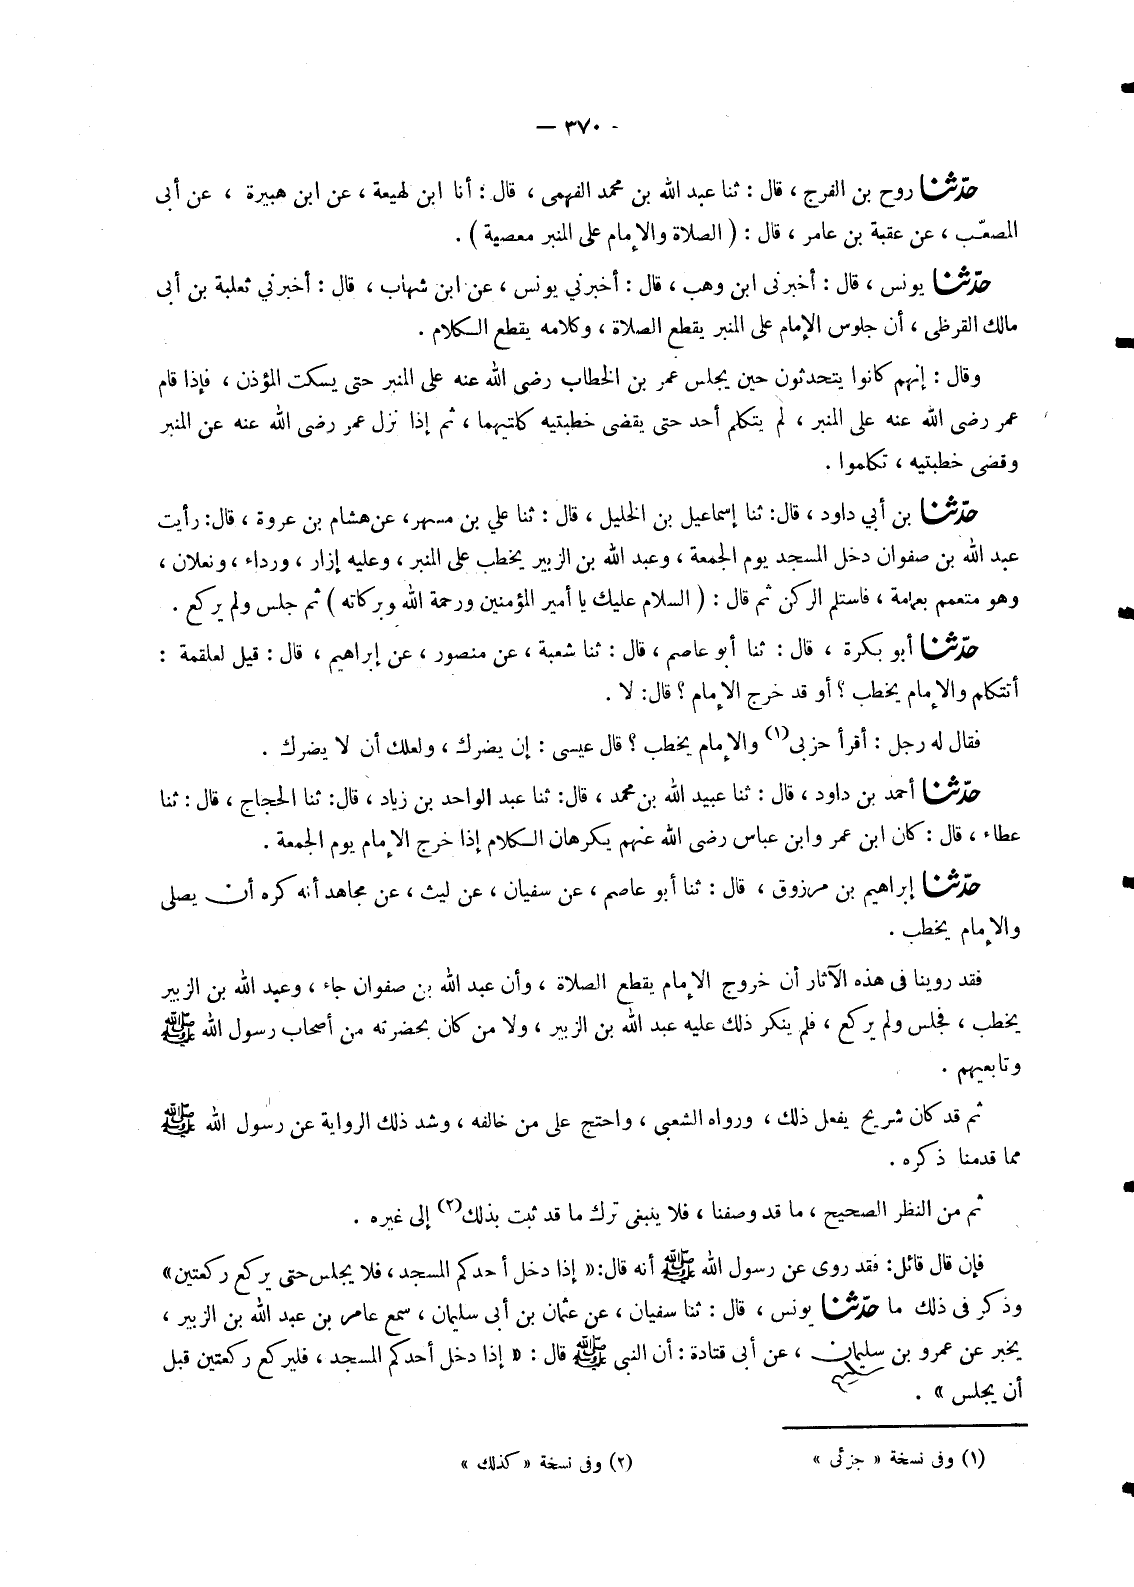 - ٣٧٠ —
حدّثنا روح بن الفرج ، قال : ثنا عبد الله بن محمد الفهمى ، قال : أنا ابن لهيعة ، عن ابن هبيرة ، عن أبى
المصعّب ، عن عقبة بن عامر ، قال : ( الصلاة والإمام على المنبر معصية ) .
حدّثنا يونس ، قال : أخبرنى ابن وهب ، قال : أخبرني يونس ، عن ابن شهاب ، قال : أخبرني ثعلبة بن أبى
مالك القرظى ، أن جلوس الإمام على المنبر يقطع الصلاة ، وكلامه يقطع الكلام .
وقال : إنهم كانوا يتحدثون حين يجلس عمر بن الخطاب رضى الله عنه على المنبر حتى يسكت المؤذن ، فإذا قام
عمر رضى الله عنه على المنبر ، لم يتكلم أحد حتى يقضى خطبتيه كلتيهما ، ثم إذا نزل عمر رضى الله عنه عن المنبر
وقضى خطبتيه ، تكلموا .
حدّثنا بن أبي داود ، قال: ثنا إسماعيل بن الخليل ، قال : ثنا علي بن مسهر، عن هشام بن عروة ، قال: رأيت
عبد الله بن صفوان دخل المسجد يوم الجمعة ، وعبد الله بن الزبير يخطب على المنبر ، وعليه إزار ، ورداء ، ونعلان ،
وهو متعمم بعمامة ، فاستلم الركن ثم قال : ( السلام عليك يا أمير المؤمنين ورحمة الله وبركاته ) ثم جلس ولم يركع .
حدّثنا أبو بكرة ، قال : ثنا أبو عاصم ، قال : ثنا شعبة ، عن منصور ، عن إبراهيم ، قال : قيل لعلقمة :
أتتكلم والإمام يخطب ؟ أو قد خرج الإمام ؟ قال: لا .
فقال له رجل : أقرأ حزبى(١) والإمام يخطب ؟ قال عيسى : إن يضرك ، ولعلك أن لا يضرك .
حدّثنا أحمد بن داود ، قال : ثنا عبيد الله بن محمد ، قال: ثنا عبد الواحد بن زياد ، قال: ثنا الحجاج ، قال : ثنا
عطاء ، قال : كان ابن عمر وابن عباس رضى الله عنهم يكرهان الكلام إذا خرج الإمام يوم الجمعة .
حدّثنا إبراهيم بن مرزوق ، قال : ثنا أبو عاصم ، عن سفيان ، عن ليث ، عن مجاهد أنه كره أن يصلى
والإمام يخطب .
فقد روينا فى هذه الآثار أن خروج الإمام يقطع الصلاة ، وأن عبد الله بن صفوان جاء ، وعبد الله بن الزبير
يخطب ، فجلس ولم يركع ، فلم ينكر ذلك عليه عبد الله بن الزبير ، ولا من كان بحضرته من أصحاب رسول الله ﷺ
وتابعيهم .
ثم قد كان شريح يفعل ذلك ، ورواه الشعبى ، واحتج على من خالفه ، وشد ذلك الرواية عن رسول الله ﷺ
مما قدمنا ذكره .
ثم من النظر الصحيح ، ما قد وصفنا ، فلا ينبغى ترك ما قد ثبت بذلك(٢) إلى غيره .
فإن قال قائل: فقد روى عن رسول الله ﷺ أنه قال: « إذا دخل أحدكم المسجد، فلا يجلس حتى يركع ركعتين»
وذكر فى ذلك ما حدّثنا يونس ، قال : ثنا سفيان ، عن عثمان بن أبى سليمان ، سمع عامر بن عبد الله بن الزبير ،
يخبر عن عمرو بن سليمان ، عن أبى قتادة : أن النبى ﷺ قال : « إذا دخل أحدكم المسجد ، فليركع ركعتين قبل
سليم
أن يجلس » .
(١) وفى نسخة « جزئى » (٢) وفى نسخة « كذلك »